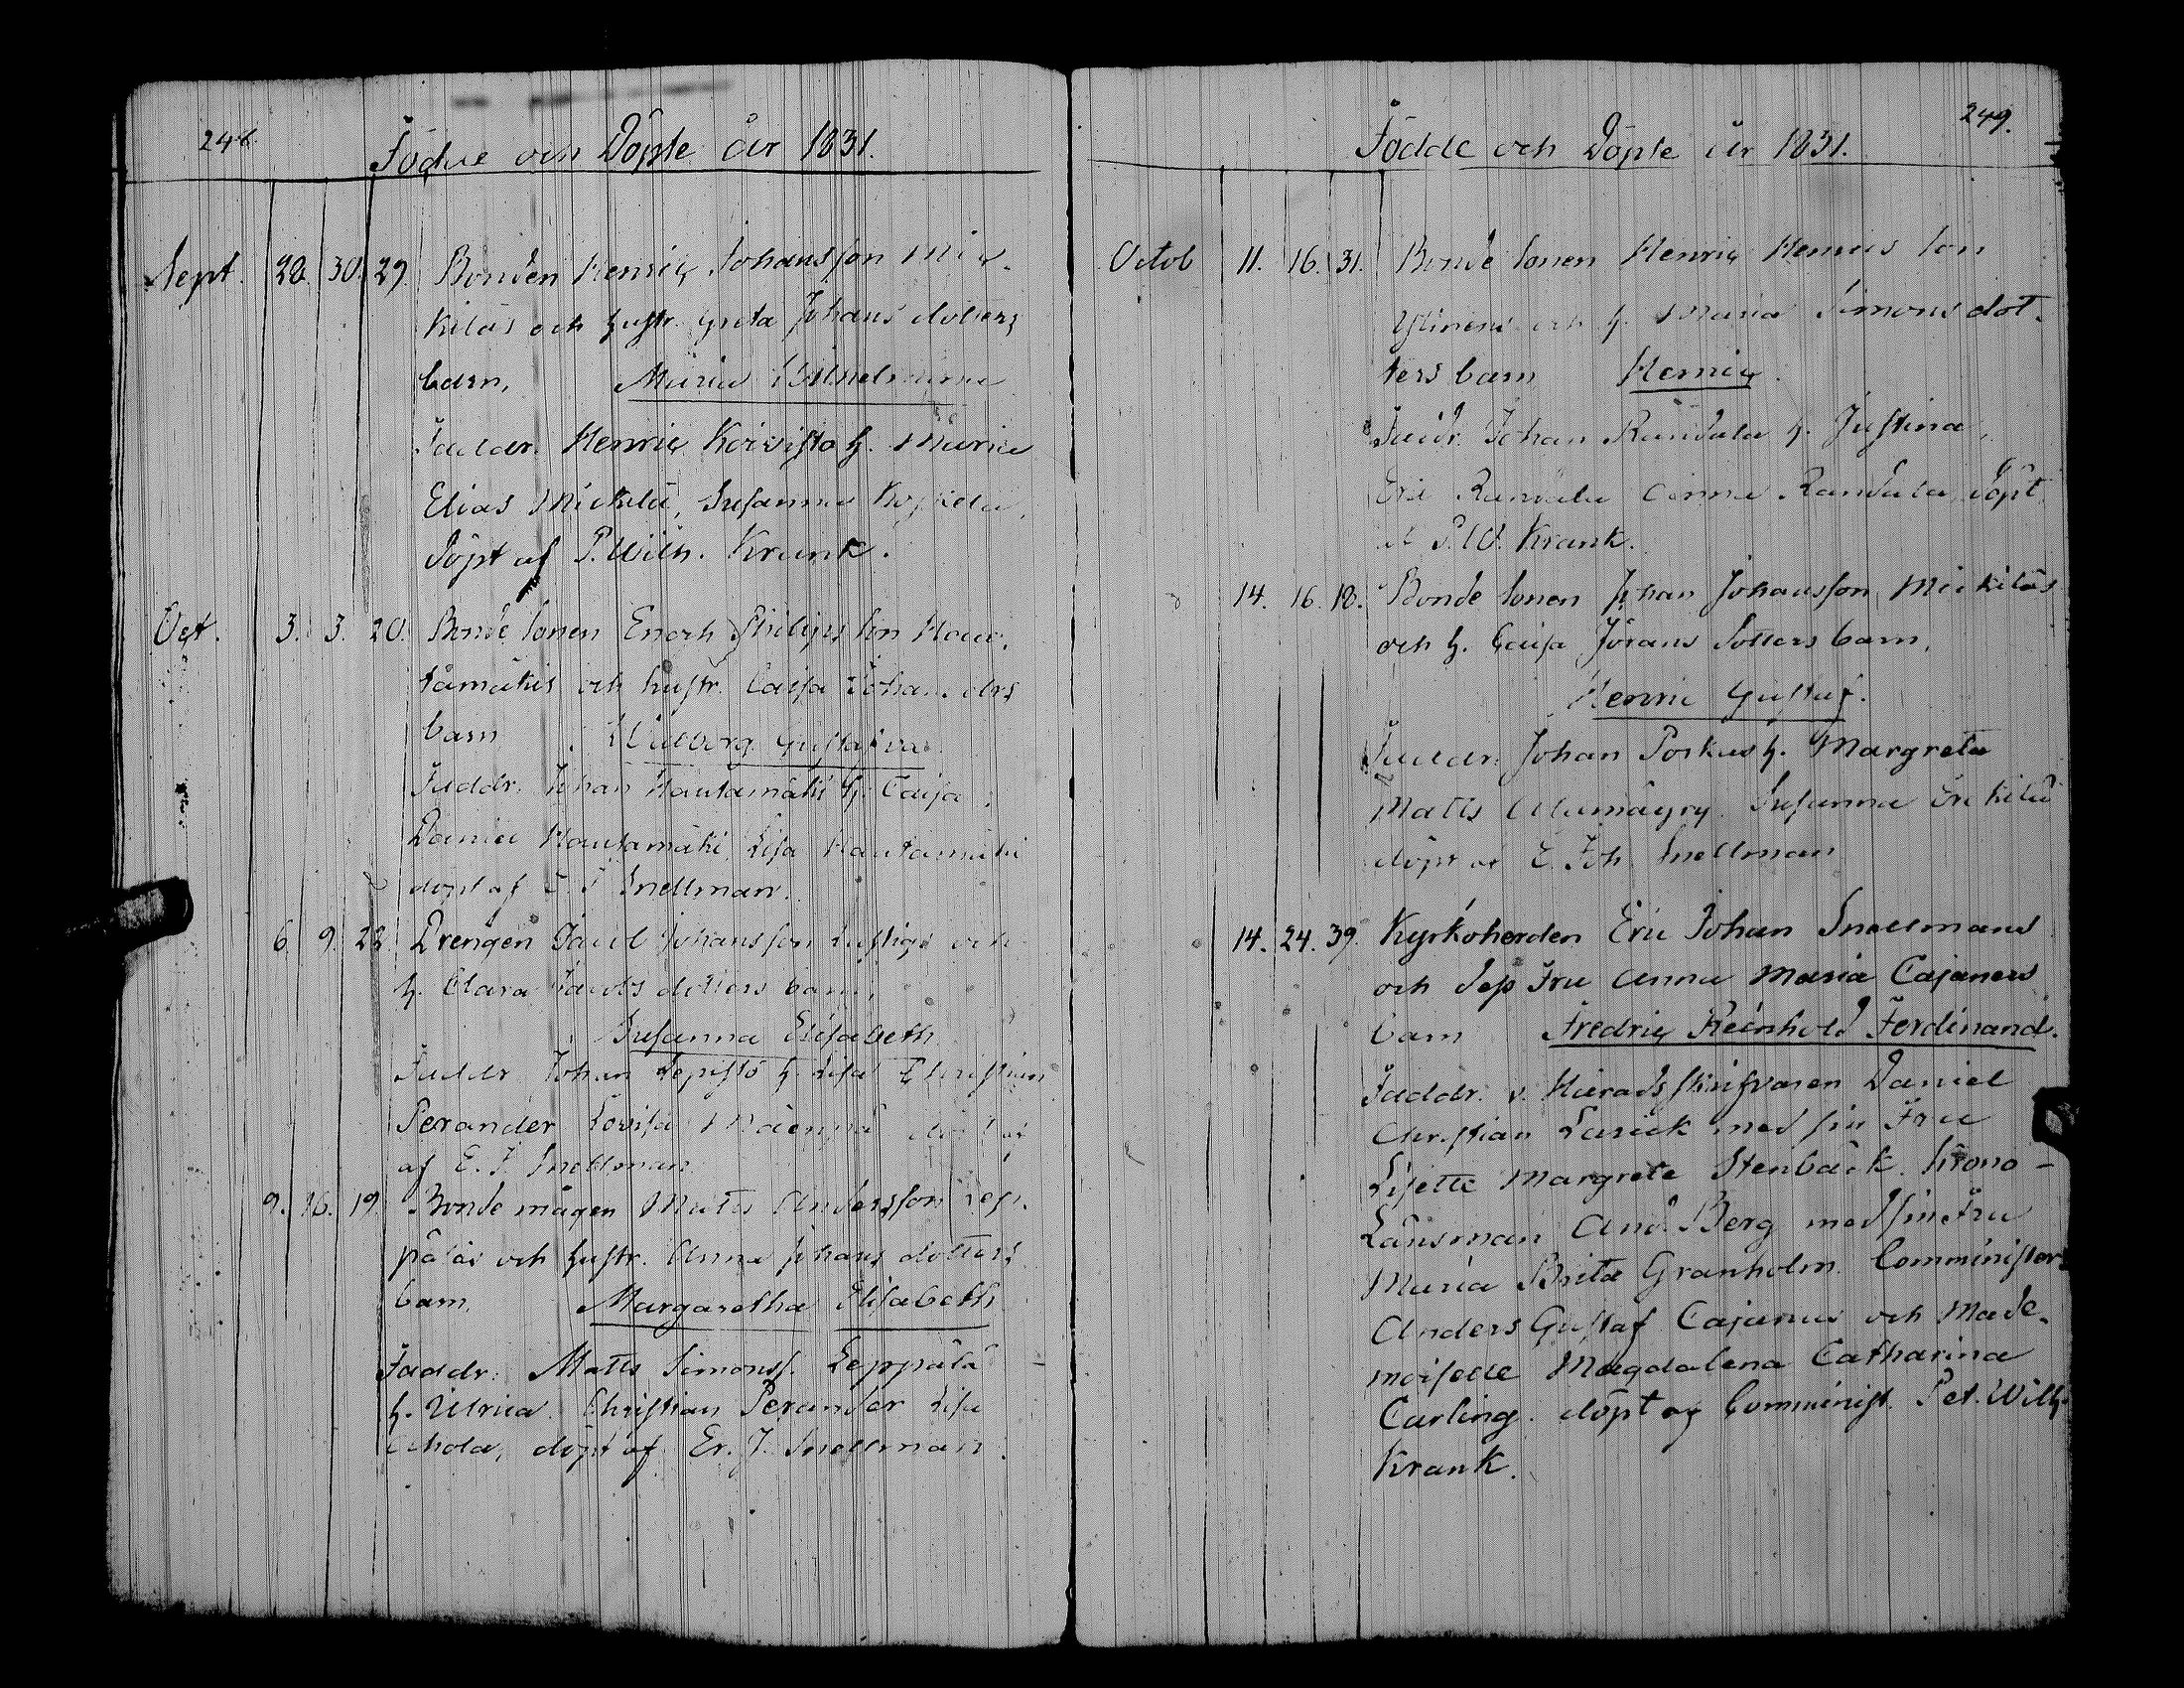 248.
Födde och Döpte år 1831.
Sept. 28. 30. 29. Bonden Henric Johansson Mic-
kiläs och hustr. Greta Johans dotters
barn, Maria Wilhelmina
Faddr. Henric Koivisto h. Maria
Elias Mickilä, Susanna
Döpt af P. Wilh. Krank.
Oct. 3. 3. 20. Bonde Sonen Enoch Philips Son Hau-
tamäkis och hustr. Caisa Johan. drs
barn Walborg Gustafva
Faddr. Johan Hautamäki h. Caisa
Daniel Hautamäki, Lisa Hautamäki
döpt af E. J. Snellman.
6. 9. 28. Drengen Jacob Johansson Lustigs och
h. Clara Jacobs dotters barn,
Susanna Elisabeth
Faddr. Johan Lepistö h. Lisa Christian
Perander Lovisa Mäenpää döpt
af E. J. Snellman
9. 16. 19. Bonde mågen Matts Andersson Lep-
päläs och hustr. Anna Johans dotters
barn. Margaretha Elisabeth
Faddr. Matts Simonss. Leppälä
h. Ulrica. Christian Perander Lisa
döpt af Er. J. Snellman.
249.
Födde och Döpte år 1831.
Octob 11. 16. 31. Bonde Sonen Henric Henrics Son
Ylinens och h. Maria Simons dot-
ters barn Henric.
Faddr. Johan Randala h. Justina,
Eric Randala Anna Randala, döpt
af P. W. Krank.
14. 16. 18. Bonde Sonen Johan Johansson Mickiläs
och h. Caisa Jörans Dotters barn,
Henric Gustaf.
Faddr. Johan Porkas h. Margreta
Matts Alamäyry Susanna
döpt af E. Joh. Snellman
14. 24. 39. Kyrkoherden Eric Johan Snellmans
och Dess Fru Anna Maria Cajaners
barn Fredric Reinhold Ferdinand.
Faddr. v. Häradsskrifvaren Daniel
Christian Lasick med sin Fru
Lisette Margreta Stenbäck. Krono-
Länsman And. Berg med sin Fru
Maria Brita Granholm. Comminister
Anders Gustaf Cajanus och Made-
moiselle Magdalena Catharina
Carling. döpt af Comminist. Pet. Wilh.
Krank.